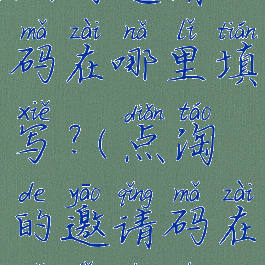 mǎ zài nǎ lǐ tián
码在哪里填
xiě diǎn táo
写?(点淘
de yāo qǐng mǎ zài
的邀请码在